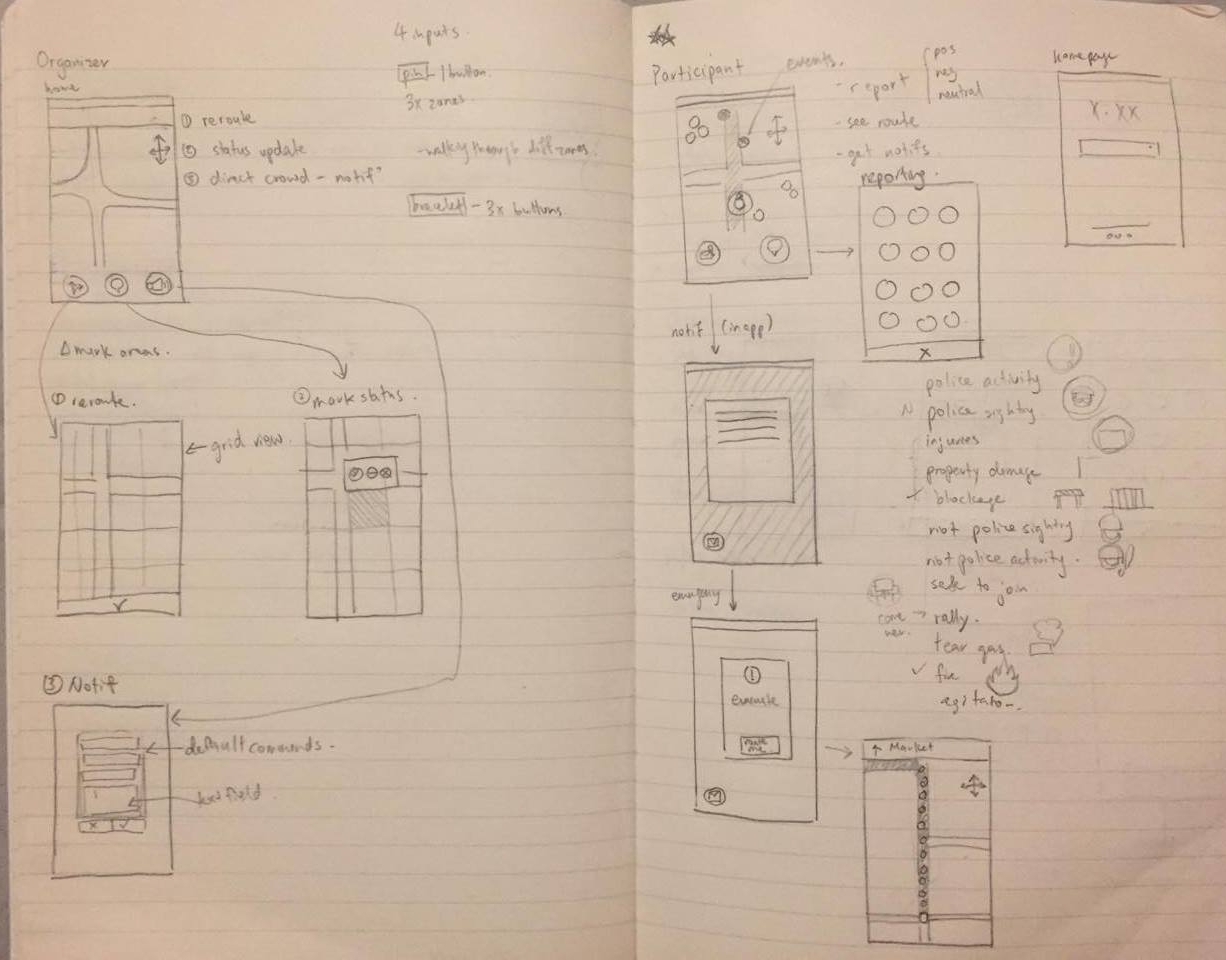 Organizer
home
① reroute
② status update
③ direct crowd - notif
4 inputs.
pin - 1 button.
3x zones
- walking through diff zones.
bracelet - 3x buttons
Δ mark areas.
① reroute.
← grid view.
② mark status.
③ Notif
default commands.
text field
Participant
events.
- report
pos
neg
neutral
- see route
- get notifs
reporting.
Homepage
X.XX
notif (in app)
emergency
!
evacuate
route me
↑ Market
police activity
N police sighting
injuries
property damage
blockage
riot police sighting
riot police activity.
safe to join
→ rally.
tear gas.
✓ fire
agitator.